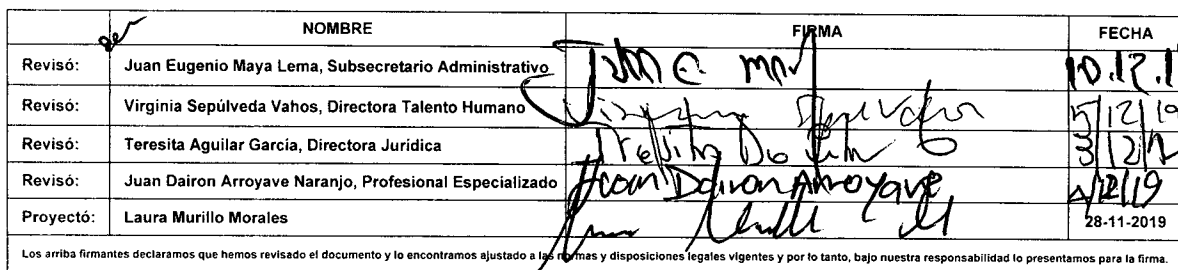 NOMBRE FIRMA FECHA
Revisó: Juan Eugenio Maya Lema, Subsecretario Administrativo 10.12.1
Revisó: Virginia Sepúlveda Vahos, Directora Talento Humano 5/12/19
Revisó: Teresita Aguilar García, Directora Jurídica
Revisó: Juan Dairon Arroyave Naranjo, Profesional Especializado Juan Dairon Arroyave /12/19
Proyectó: Laura Murillo Morales 28-11-2019
Los arriba firmantes declaramos que hemos revisado el documento y lo encontramos ajustado a las normas y disposiciones legales vigentes y por lo tanto, bajo nuestra responsabilidad lo presentamos para la firma.